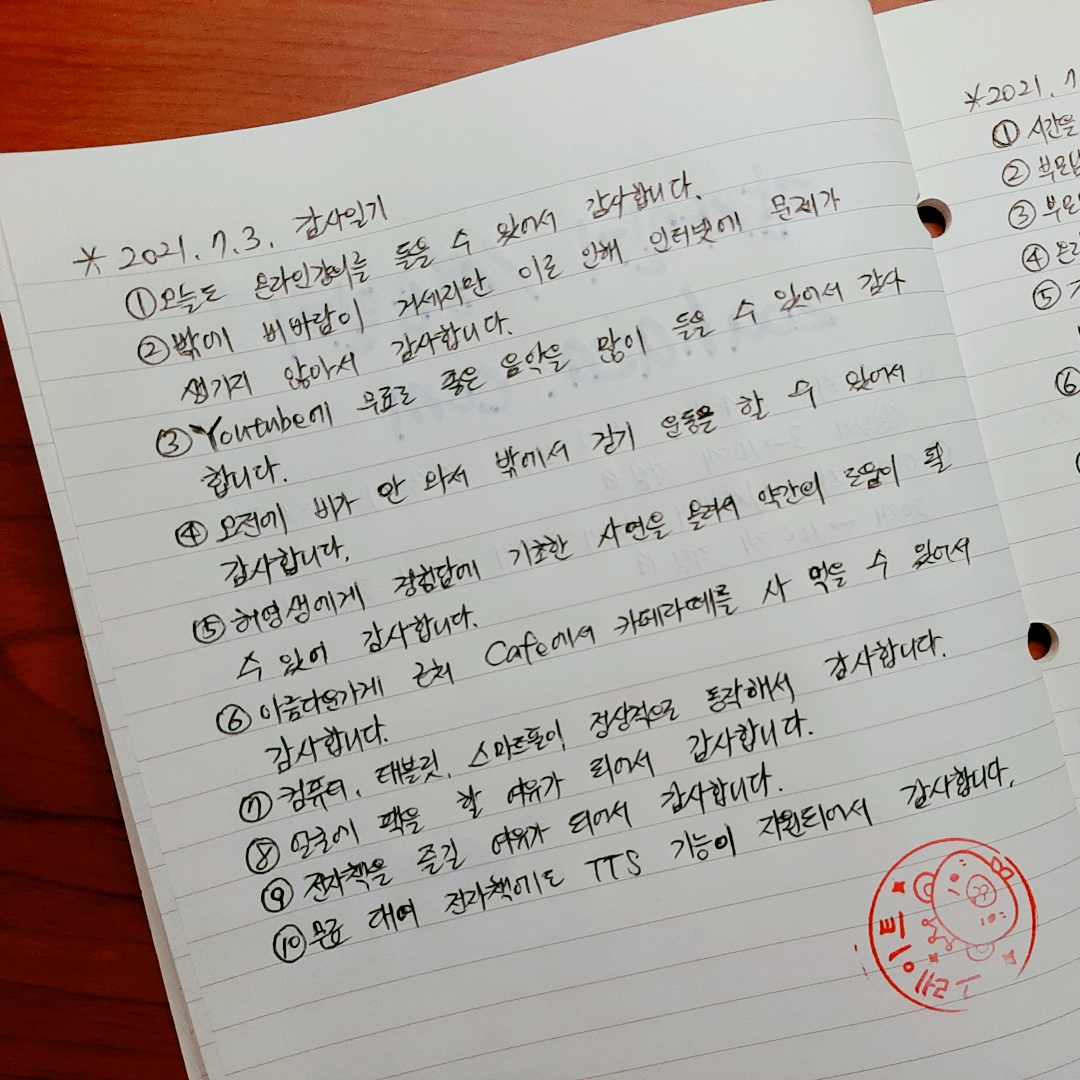 * 2021. 7. 3. 감사일기
① 오늘도 온라인강의를 들을 수 있어서 감사합니다.
② 밖에 비바람이 거세지만 이로 인해 인터넷에 문제가
생기지 않아서 감사합니다.
③ Youtube에 무료로 좋은 음악을 많이 들을 수 있어서 감사
합니다.
④ 오전에 비가 안 와서 밖에서 걷기 운동을 할 수 있어서
감사합니다.
⑤ 허영생에게 경험담에 기초한 사연을 올려서 약간의 도움이 될
수 있어 감사합니다.
⑥ 아름다운가게 근처 Cafe에서 카페라떼를 사 먹을 수 있어서
감사합니다.
⑦ 컴퓨터, 태블릿, 스마트폰이 정상적으로 동작해서 감사합니다.
⑧ 얼굴에 팩을 할 여유가 되어서 감사합니다.
⑨ 전자책을 즐길 여유가 되어서 감사합니다.
⑩ 무료 대여 전자책에도 TTS 기능이 지원되어서 감사합니다.
* 2021. 7
① 시간을
② 부모님
③ 부모
④ 온라
⑤
⑥